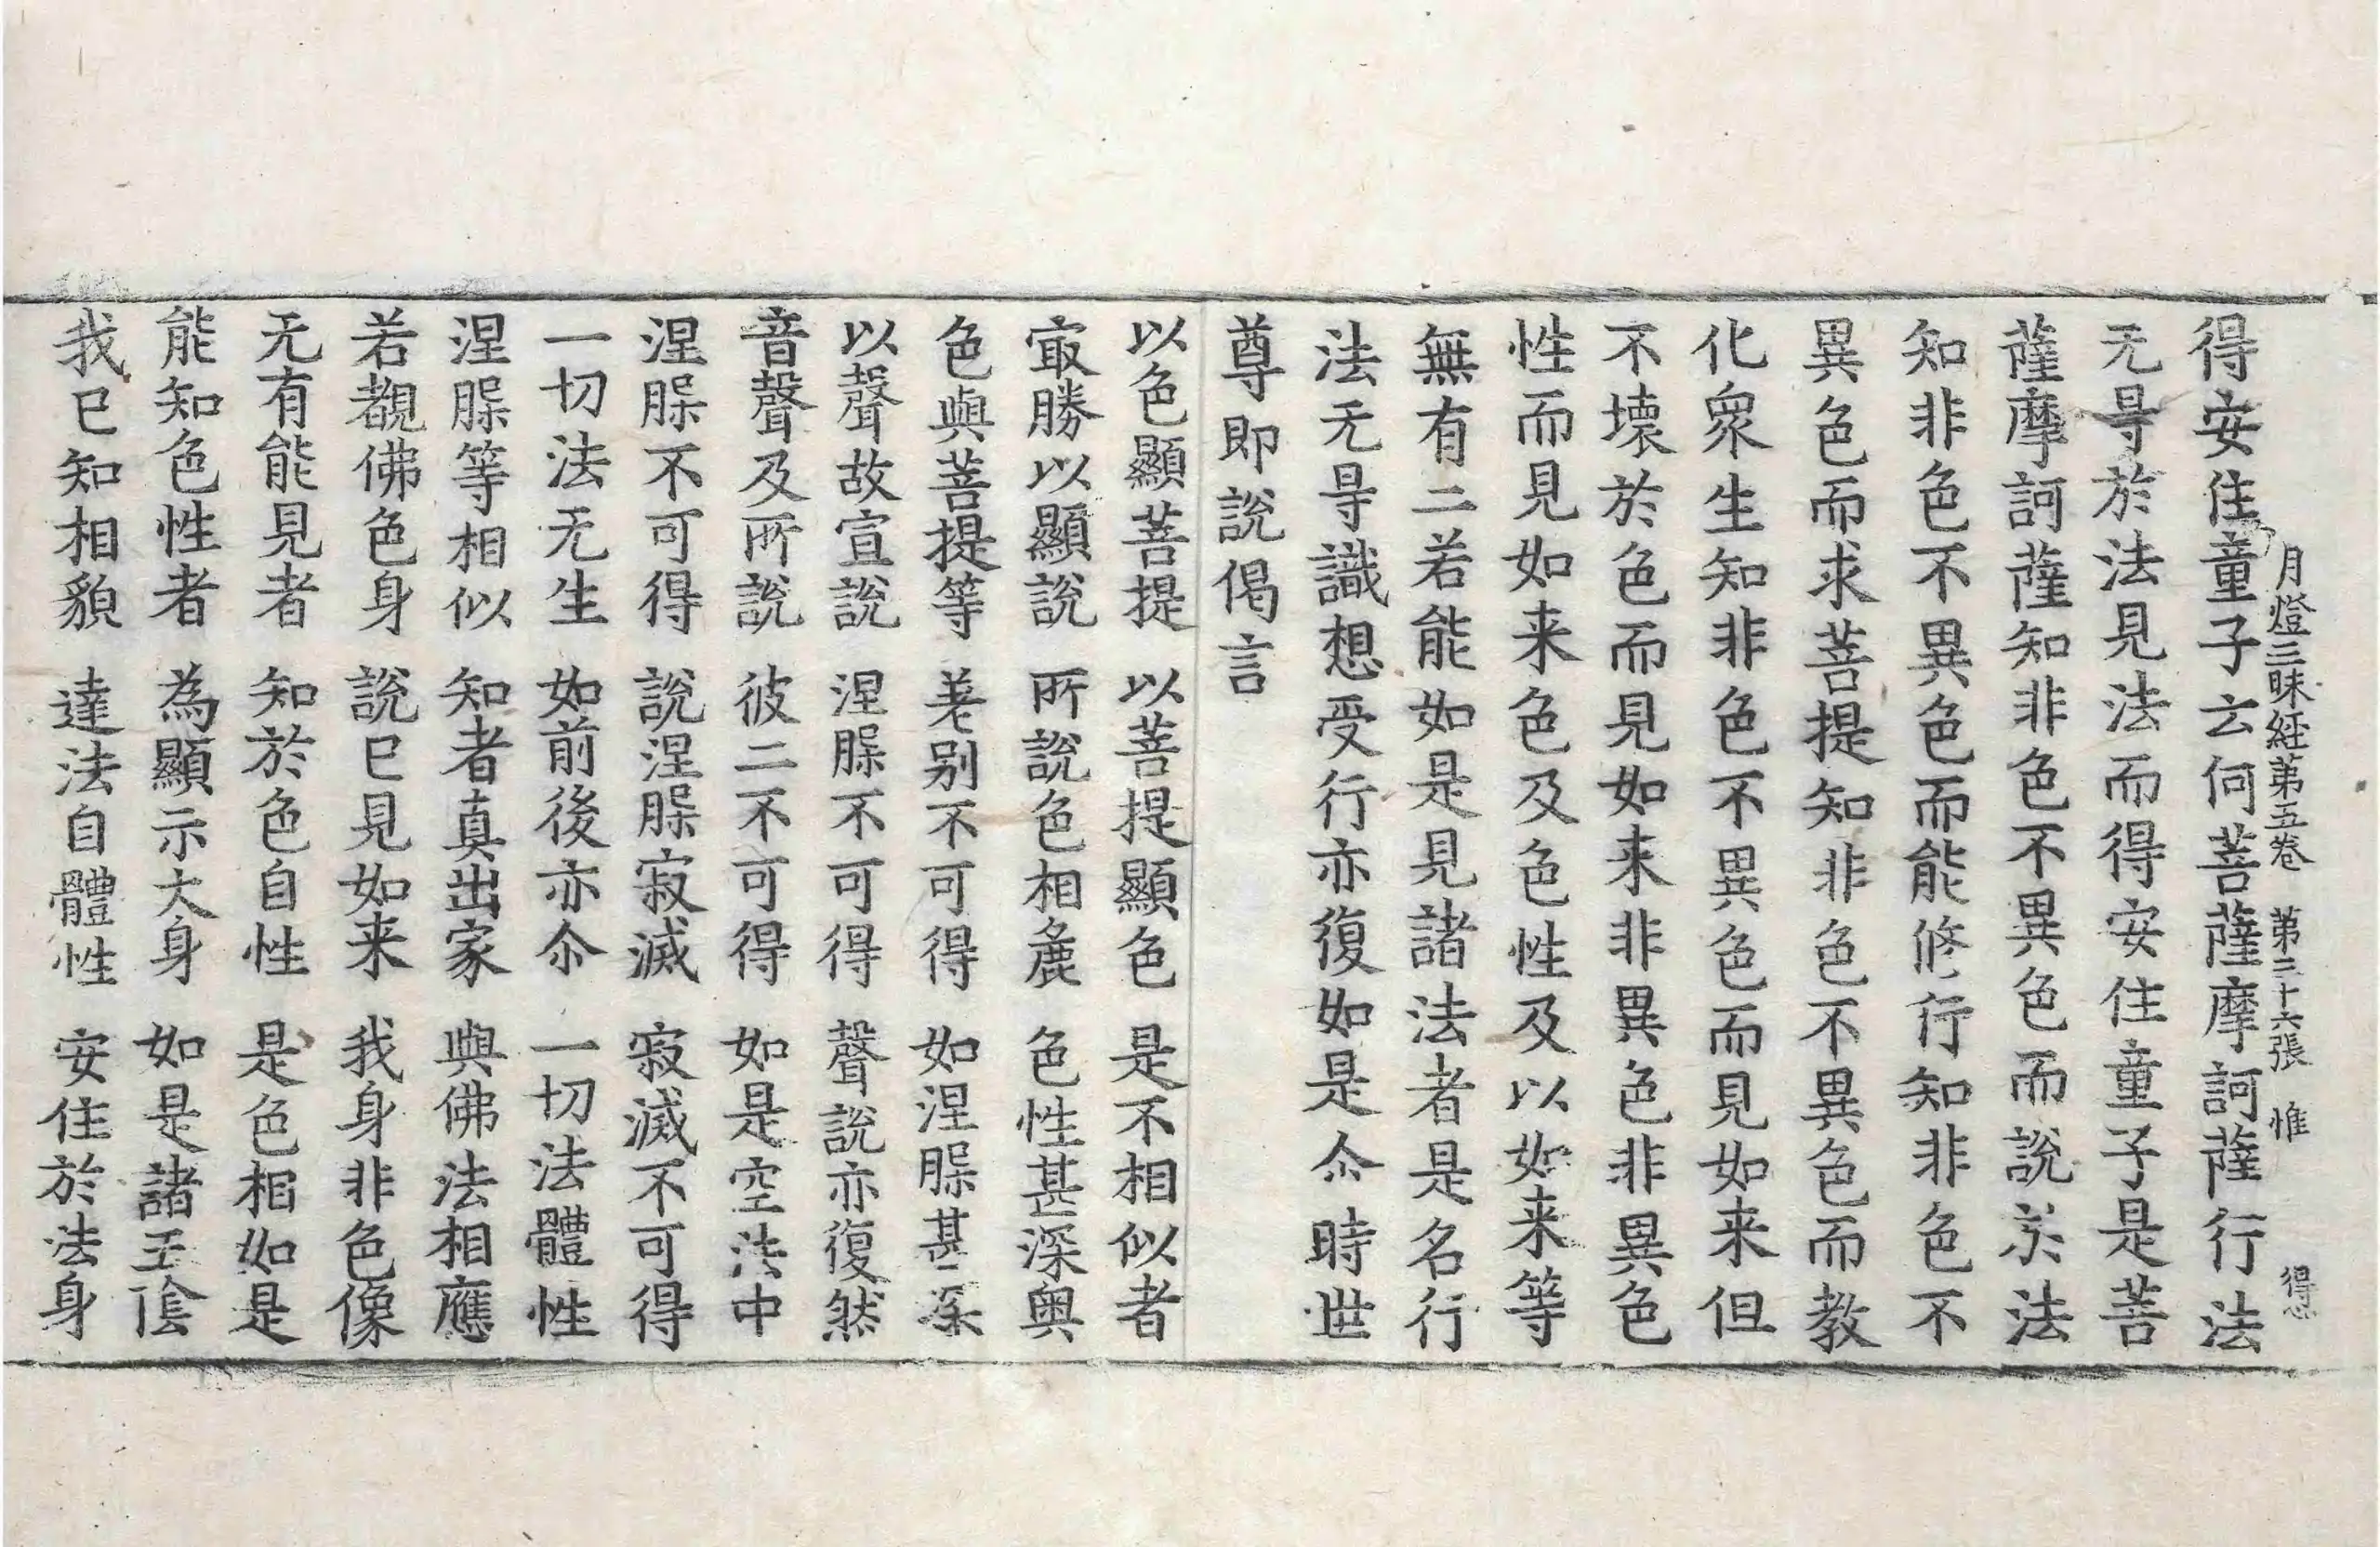 月燈三昧經苐五卷 苐三十六張 惟 得
得安住童子云何菩薩摩訶薩行法
无㝵於法見法而得安住童子是菩
薩摩訶薩知非色不異色而說於法
知非色不異色而能修行知非色不
異色而求菩提知非色不異色而教
化衆生知非色不異色而見如来但
不壊於色而見如来非異色非異色
性而見如来色及色性及以如来等
無有二若能如是見諸法者是名行
法无㝵識想受行亦復如是尒時世
尊即說偈言
以色顯菩提 以菩提顯色 是不相似者
㝡勝以顯說 所說色相麁 色性甚深奥
色與菩提等 差别不可得 如涅槃甚深
以聲故宣說 涅槃不可得 聲說亦復然
音聲及所說 彼二不可得 如是空法中
涅槃不可得 說涅槃寂滅 寂滅不可得
一切法无生 如前後亦尒 一切法體性
涅槃等相似 知者真出家 與佛法相應
若覩佛色身 說巳見如来 我身非色像
无有能見者 知於色自性 是色相如是
能知色性者 為顯示大身 如是諸五隂
我巳知相䫉 達法自體性 安住於法身